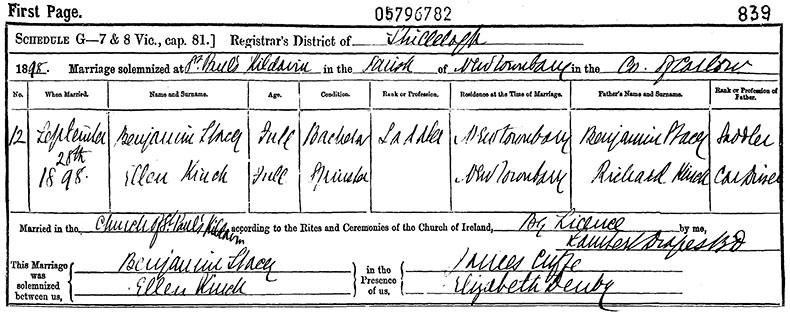 First Page. 05796782 839
SCHEDULE G—7 & 8 Vic., cap. 81.] Registrar's District of Shillelagh
1898. Marriage solemnized at St. Paul's Kildavin in the Parish of Newtownbarry in the Co. of Carlow
No. When Married. Name and Surname. Age. Condition. Rank or Profession. Residence at the Time of Marriage. Father's Name and Surname. Rank or Profession of Father.
12 September 28th 1898. Benjamin Stacey Full Bachelor Saddler Newtownbarry Benjamin Stacey Saddler
Ellen Kinch Full Spinster Newtownbarry Richard Kinch Car Driver
Married in the Church of St. Paul's Kildavin according to the Rites and Ceremonies of the Church of Ireland, By Licence by me,
Lambert Drapes BD
This Marriage was solemnized between us, Benjamin Stacey in the Presence of us, Cuffe
Ellen Kinch Elizabeth Denby